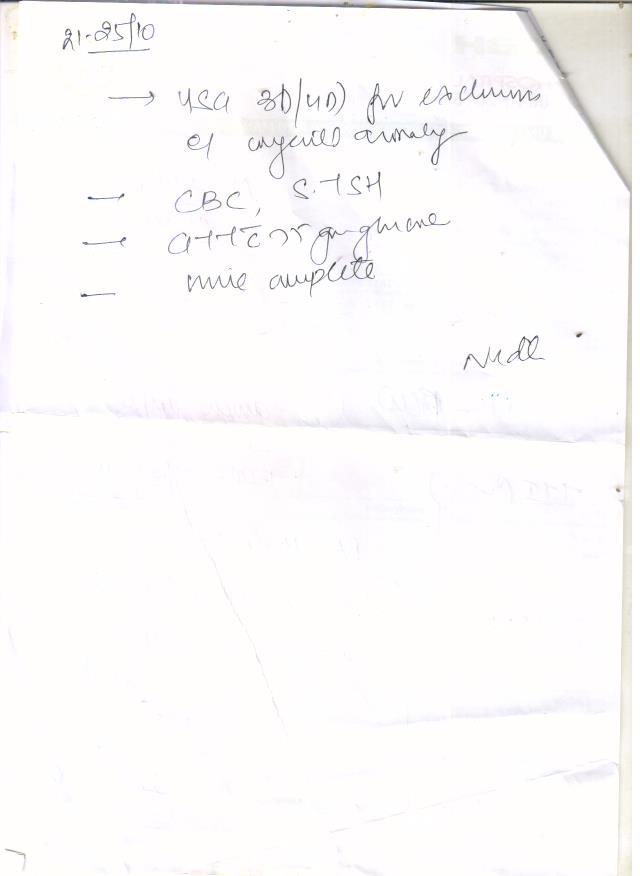 21-25/10
→ USG 3D/4D) for exclusions
of congenital anomaly
— CBC, S.TSH
— GTT c 75 gm glucose
— urine complete